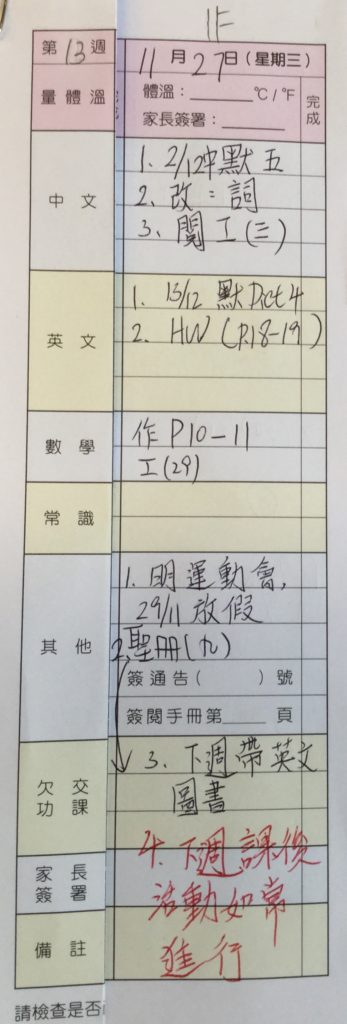 1F
第13週
11月27日(星期三)
量體溫
體溫：______℃/℉
家長簽署：______
完成
中文
1. 2/12 默五
2. 改：詞
3. 閱工(三)
英文
1. 13/12 默Dict 4
2. HW (P.18-19)
數學
作P10-11
工(29)
常識
其他
1. 明運動會,
29/11放假
2. 聖冊(九)
簽通告(　　)號
簽閱手冊第____頁
欠交功課
3. 下週帶英文
圖書
4. 下週課後
活動如常
進行
家長簽署
備註
請檢查是否